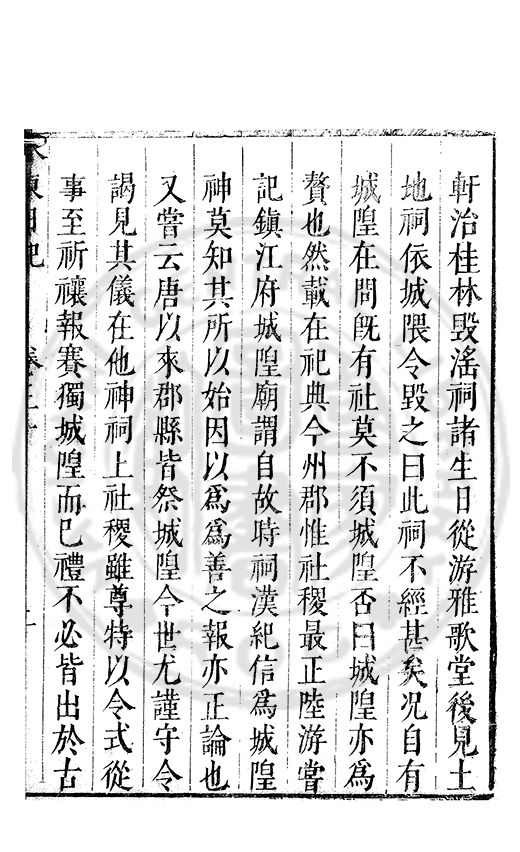 軒治桂林毀滛祠諸生日從游雅歌堂後見土
地祠依城隈令毀之曰此祠不經甚矣况自有
城隍在問旣有社莫不須城隍否曰城隍亦爲
贅也然載在祀典今州郡惟社稷最正陸游嘗
記鎮江府城隍廟謂自故時祠漢紀信爲城隍
神莫知其所以始因以爲爲善之報亦正論也
又嘗云唐以來郡縣皆祭城隍今世尤謹守令
謁見其儀在他神祠上社稷雖尊特以令式從
事至祈禳報賽獨城隍而已禮不必皆出於古